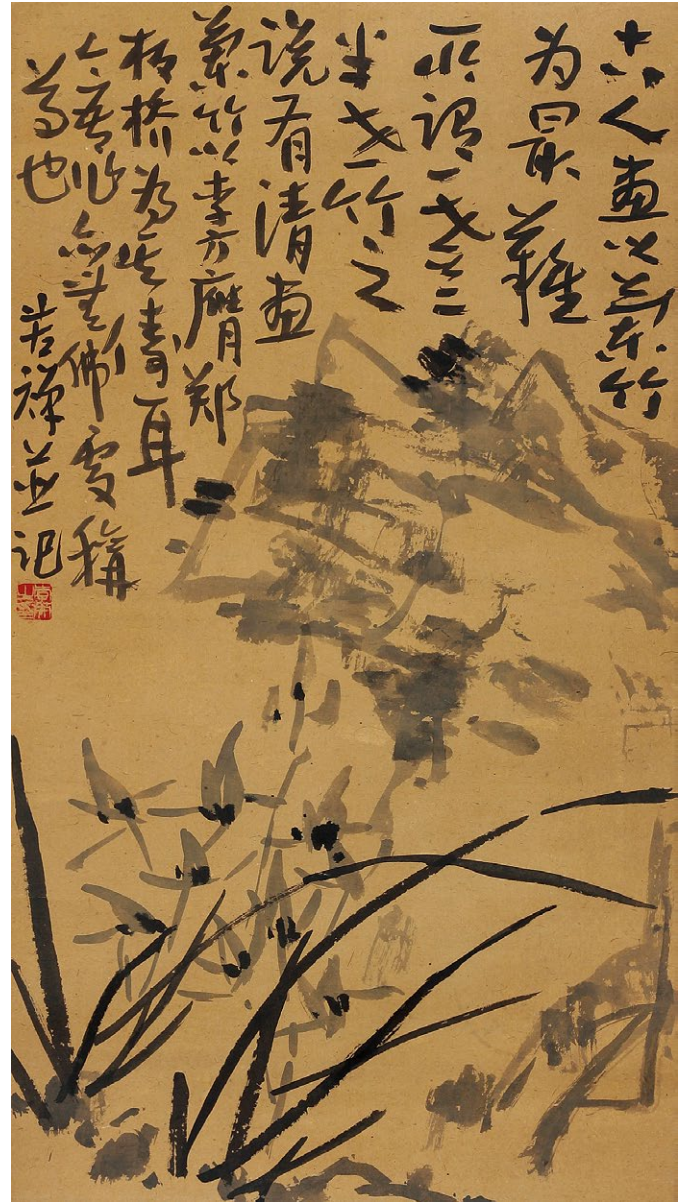 古人画以兰竹
为最难
所谓一世兰
半世竹之
说有清画
兰竹以李方膺郑
板桥为笑寿耳
今吾作亦无佛处称
尊也
苦禅並记